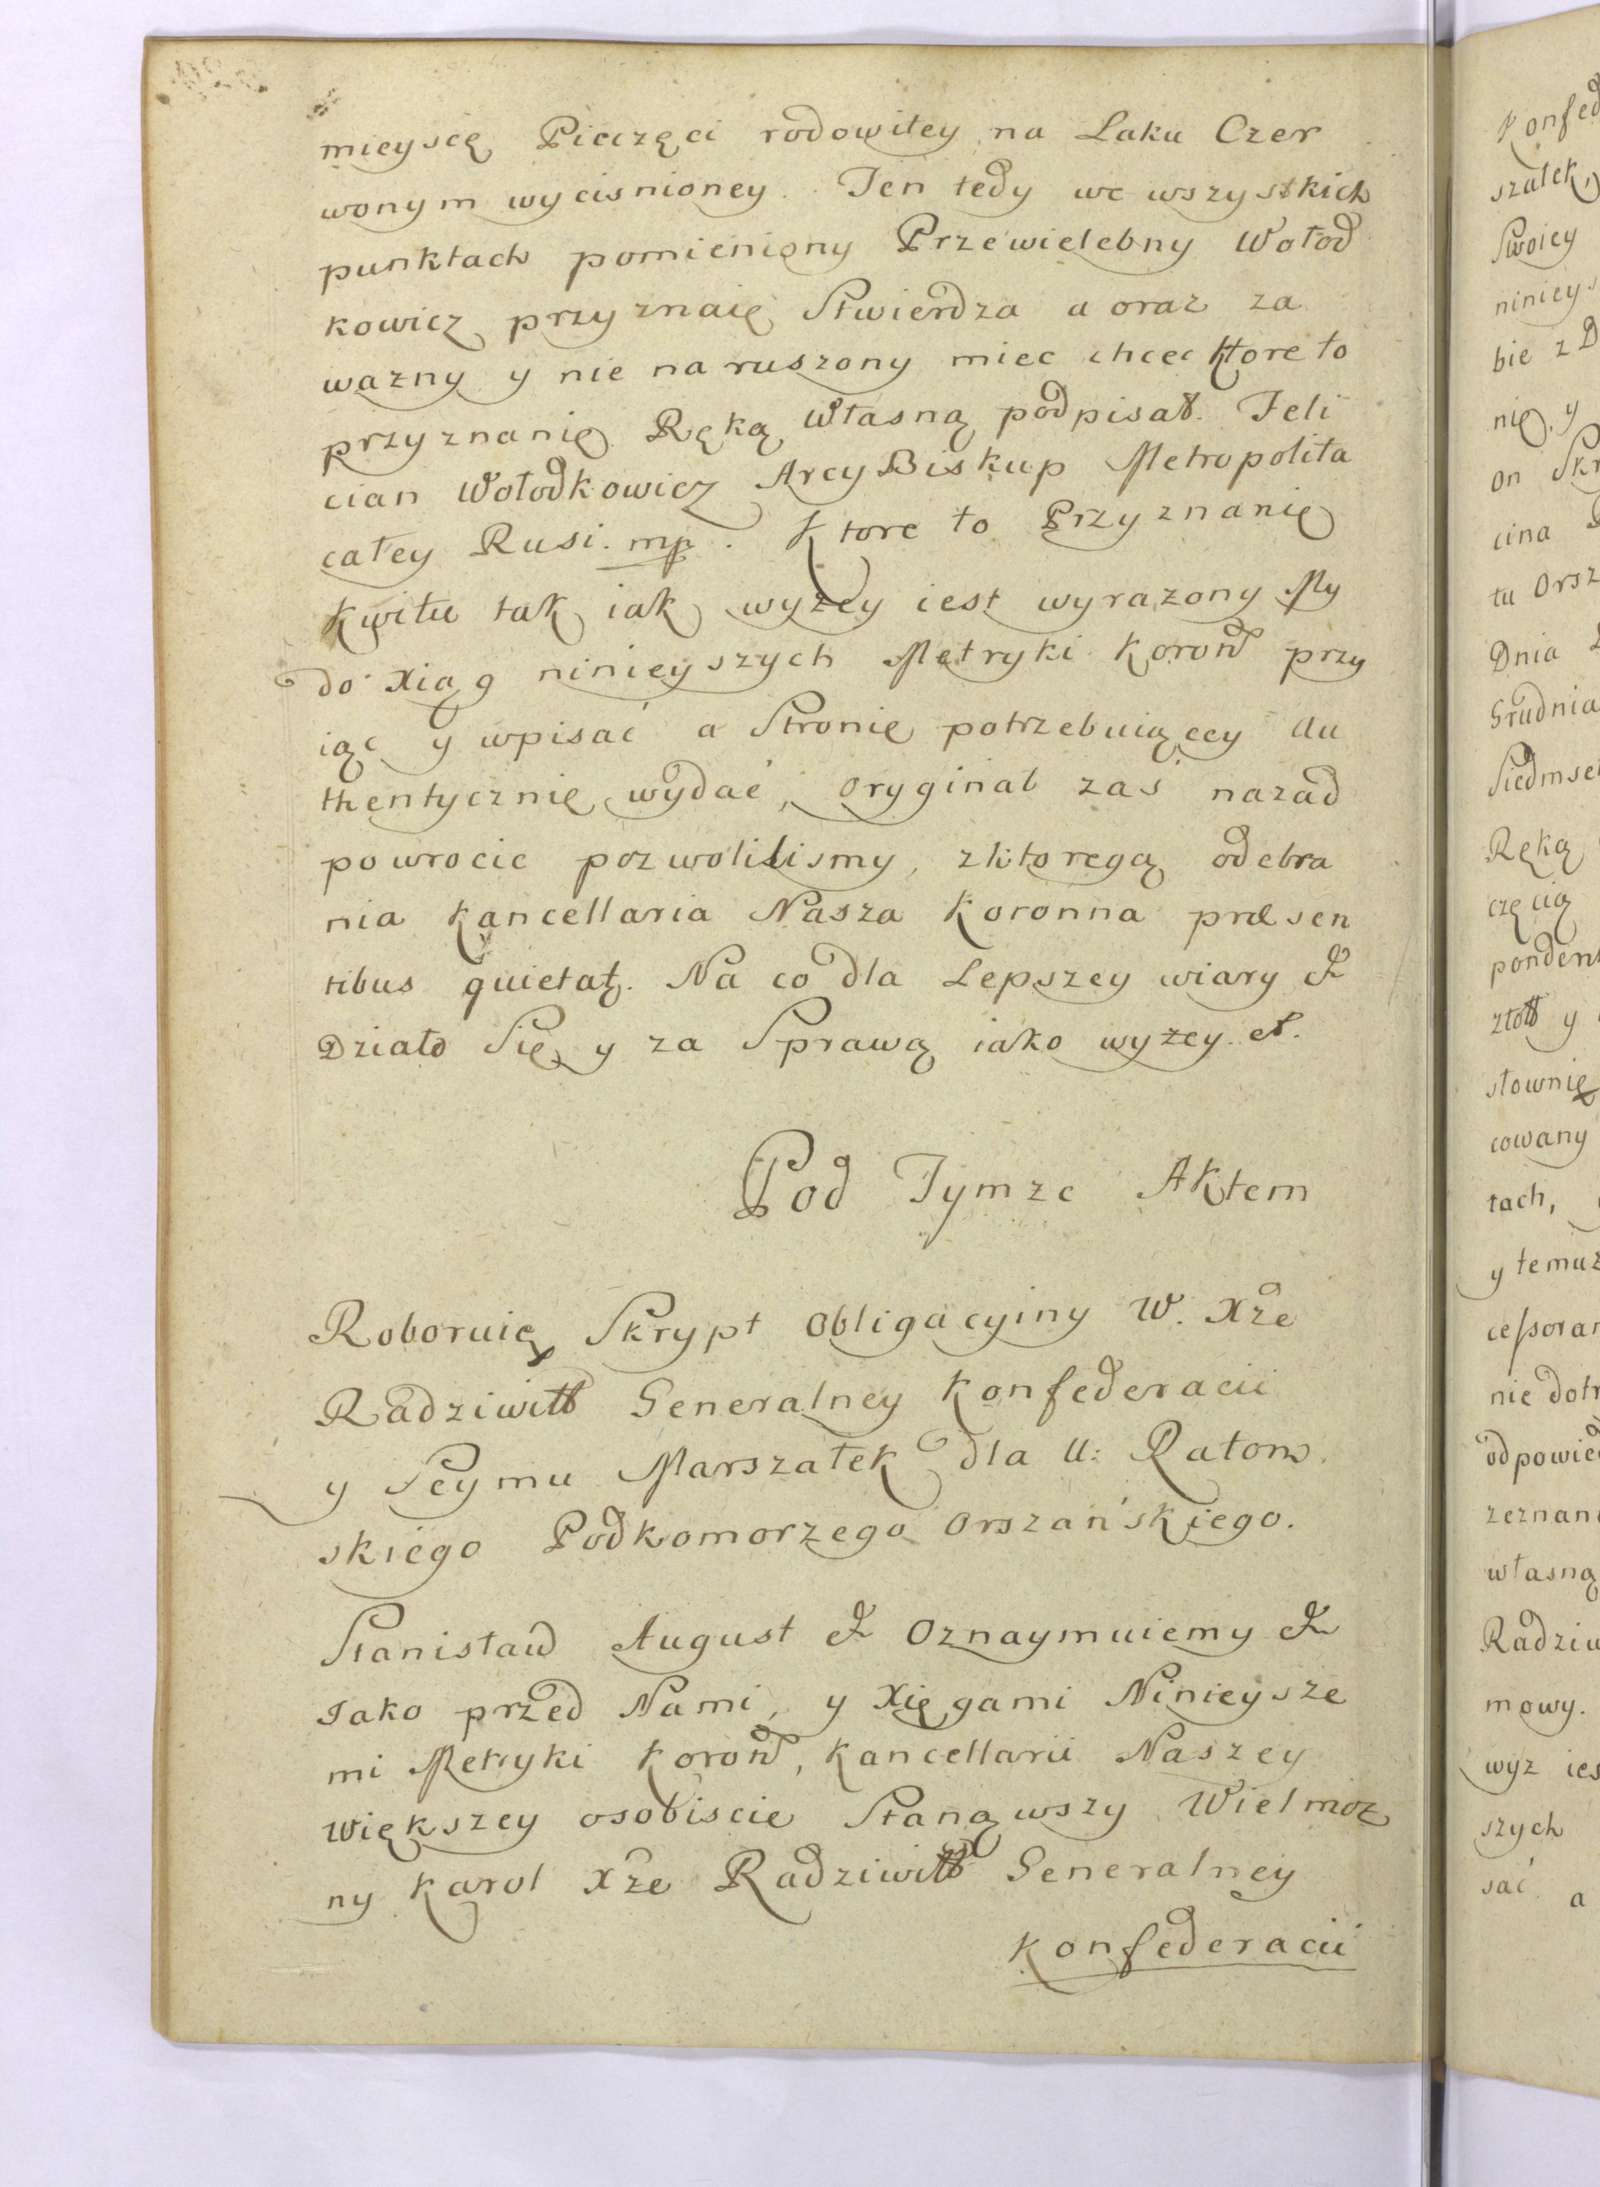 mieyscę Pieczęci rodowitey na Laku Czer
wonym wycisnioney. Ten tedy we wszystkich
punktach pomieniony Przewielebny Wołod
kowicz przyznaię Stwierdza a oraz za
wazny y nie naruszony miec chce Ktore to
przyznanię Ręką Własną podpisał. Feli
cian Wołodkowicz ArcyBiskup Metropolita
całey Rusi. mp. Ktore to Przyznanię
Kwitu tak iak wyzey iest wyrazony My
do Xiąg ninieyszych Metryki Koroñ przy
iąc y wpisać a Stronię potrzebuiącey Au
thentycznię wydać, oryginał zaś nazad
powrocic pozwolilismy, zktoregą odebra
nia Kancellaria Nasza Koronna præsen
tibus quietat. Na co dla Lepszey wiary &
Działo Się y za Sprawą iako wyżey. &.
Pod Tymze Aktem
Roboruię Skrypt Obligacyiny W. Xże
Radziwiłł Generalney Konfederacii
y Seymu Marszałek dla U: Ratom
skiego Podkomorzego Orszańskiego.
Stanisław August & Oznaymuiemy &
Iako przed Nami, y Xięgami Ninieysze
mi Metryki Koroñ, Kancellarii Naszey
Większey osobiscie Stanąwszy Wielmoz
ny Karol Xże Radziwiłł Generalney
Konfederacii
Konfed
szałek,
Swoiey
ninieys
bie z D
nię, y
on Skr
cina
tu Orsz
Dnia
Grudnia
Siedmset
Ręką
częcią
pondent
złotł y
słownię
cowany
tach,
y temuz
cessoram
nie dotr
odpowied
zeznani
własną
Radziw
mowy.
wyz ies
szych
sać a